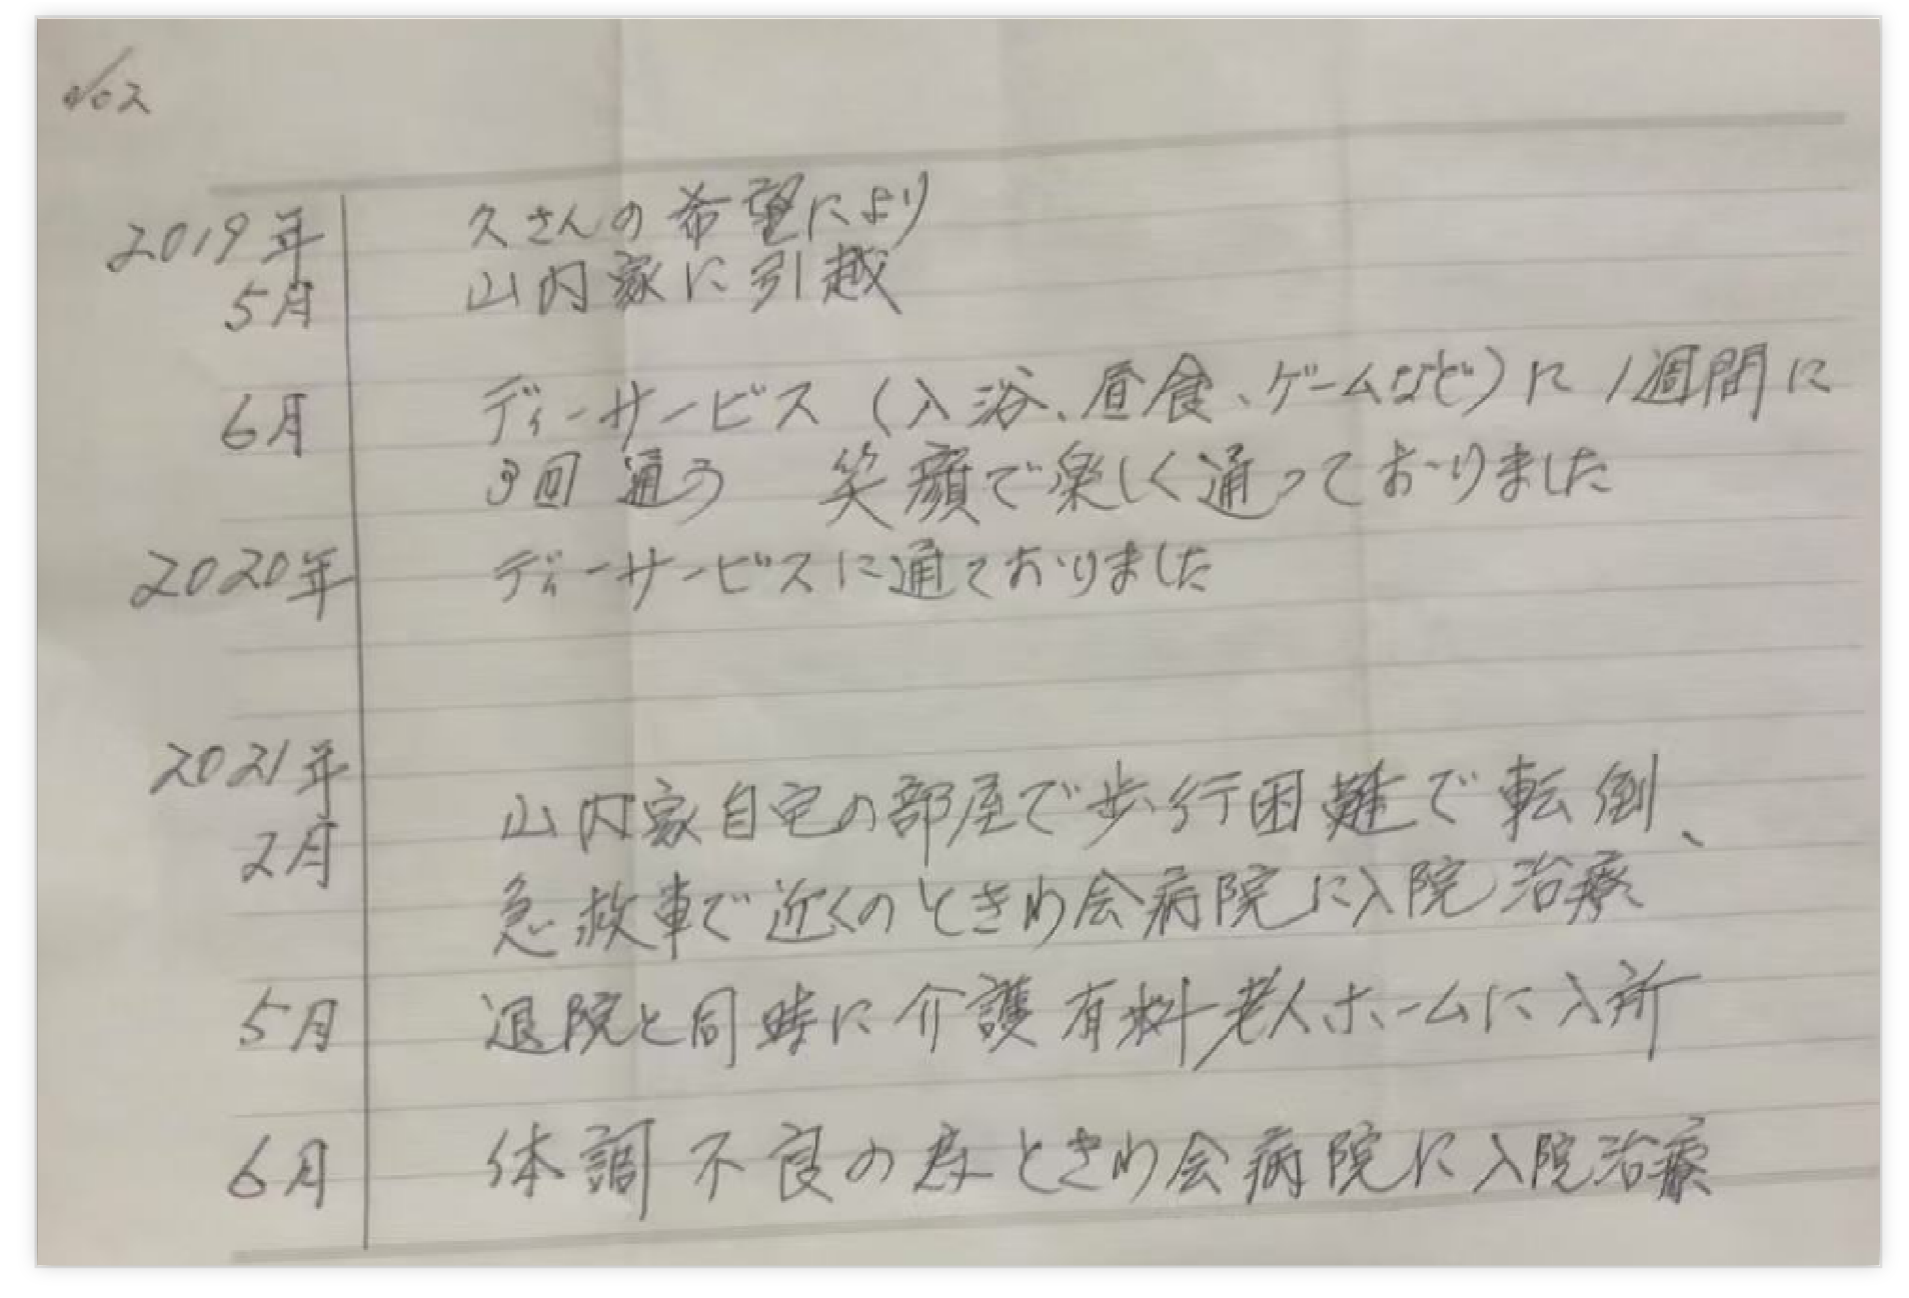 No2
2019年 久さんの希望により
5月 山内家に引越
6月 ディーサービス (入浴、昼食、ゲームなど)に1週間に
3回通う 笑顔で楽しく通っておりました
2020年 ディーサービスに通ておりました
2021年
2月 山内家自宅の部屋で歩行困難で転倒、
急救車で近くのときわ会病院に入院治療
5月 退院と同時に介護有料老人ホームに入所
6月 体調不良の為ときわ会病院に入院治療